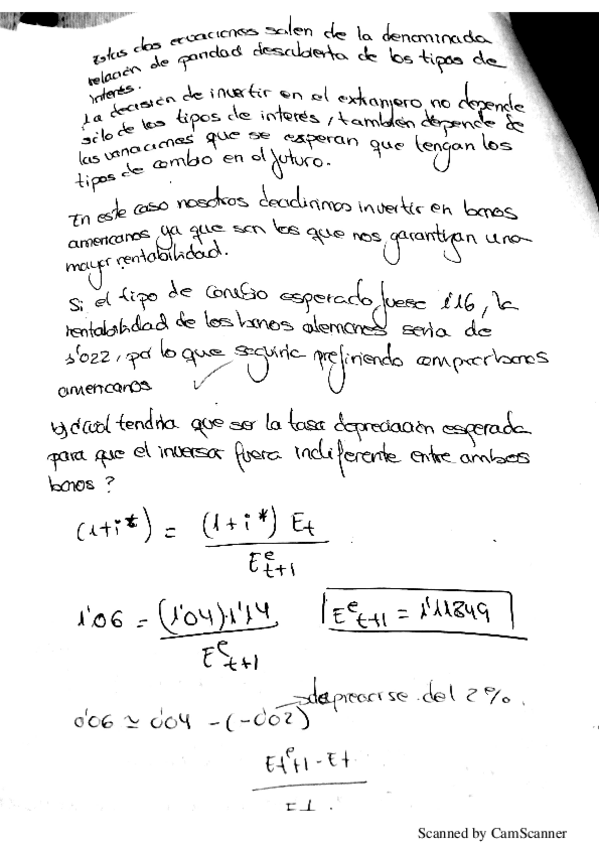 Estas dos ecuaciones salen de la denominada
relación de paridad descubierta de los tipos de
interés.
La decisión de invertir en el extranjero no depende
sólo de los tipos de interés, también depende de
las variaciones que se esperan que tengan los
tipos de cambio en el futuro.
En este caso nosotros decidirimos invertir en bonos
americanos ya que son los que nos garantizan una
mayor rentabilidad.
Si el tipo de cambio esperado fuese 1'16, la
rentabilidad de los bonos alemanes seria de
1'022, por lo que seguiria prefiriendo comprar bonos
americanos
b) ¿Cuál tendria que ser la tasa depreciación esperada
para que el inversor fuera indiferente entre ambos
bonos?
(1+i*) = (1+i*) Et
E^e t+1
1'06 = (1'04)·1'14 E^e t+1 = 1'11849
E^e t+1
0'06 ≃ 0'04 - (-0'02) → depreciarse del 2%.
E^e t+1 - Et
Et
Scanned by CamScanner